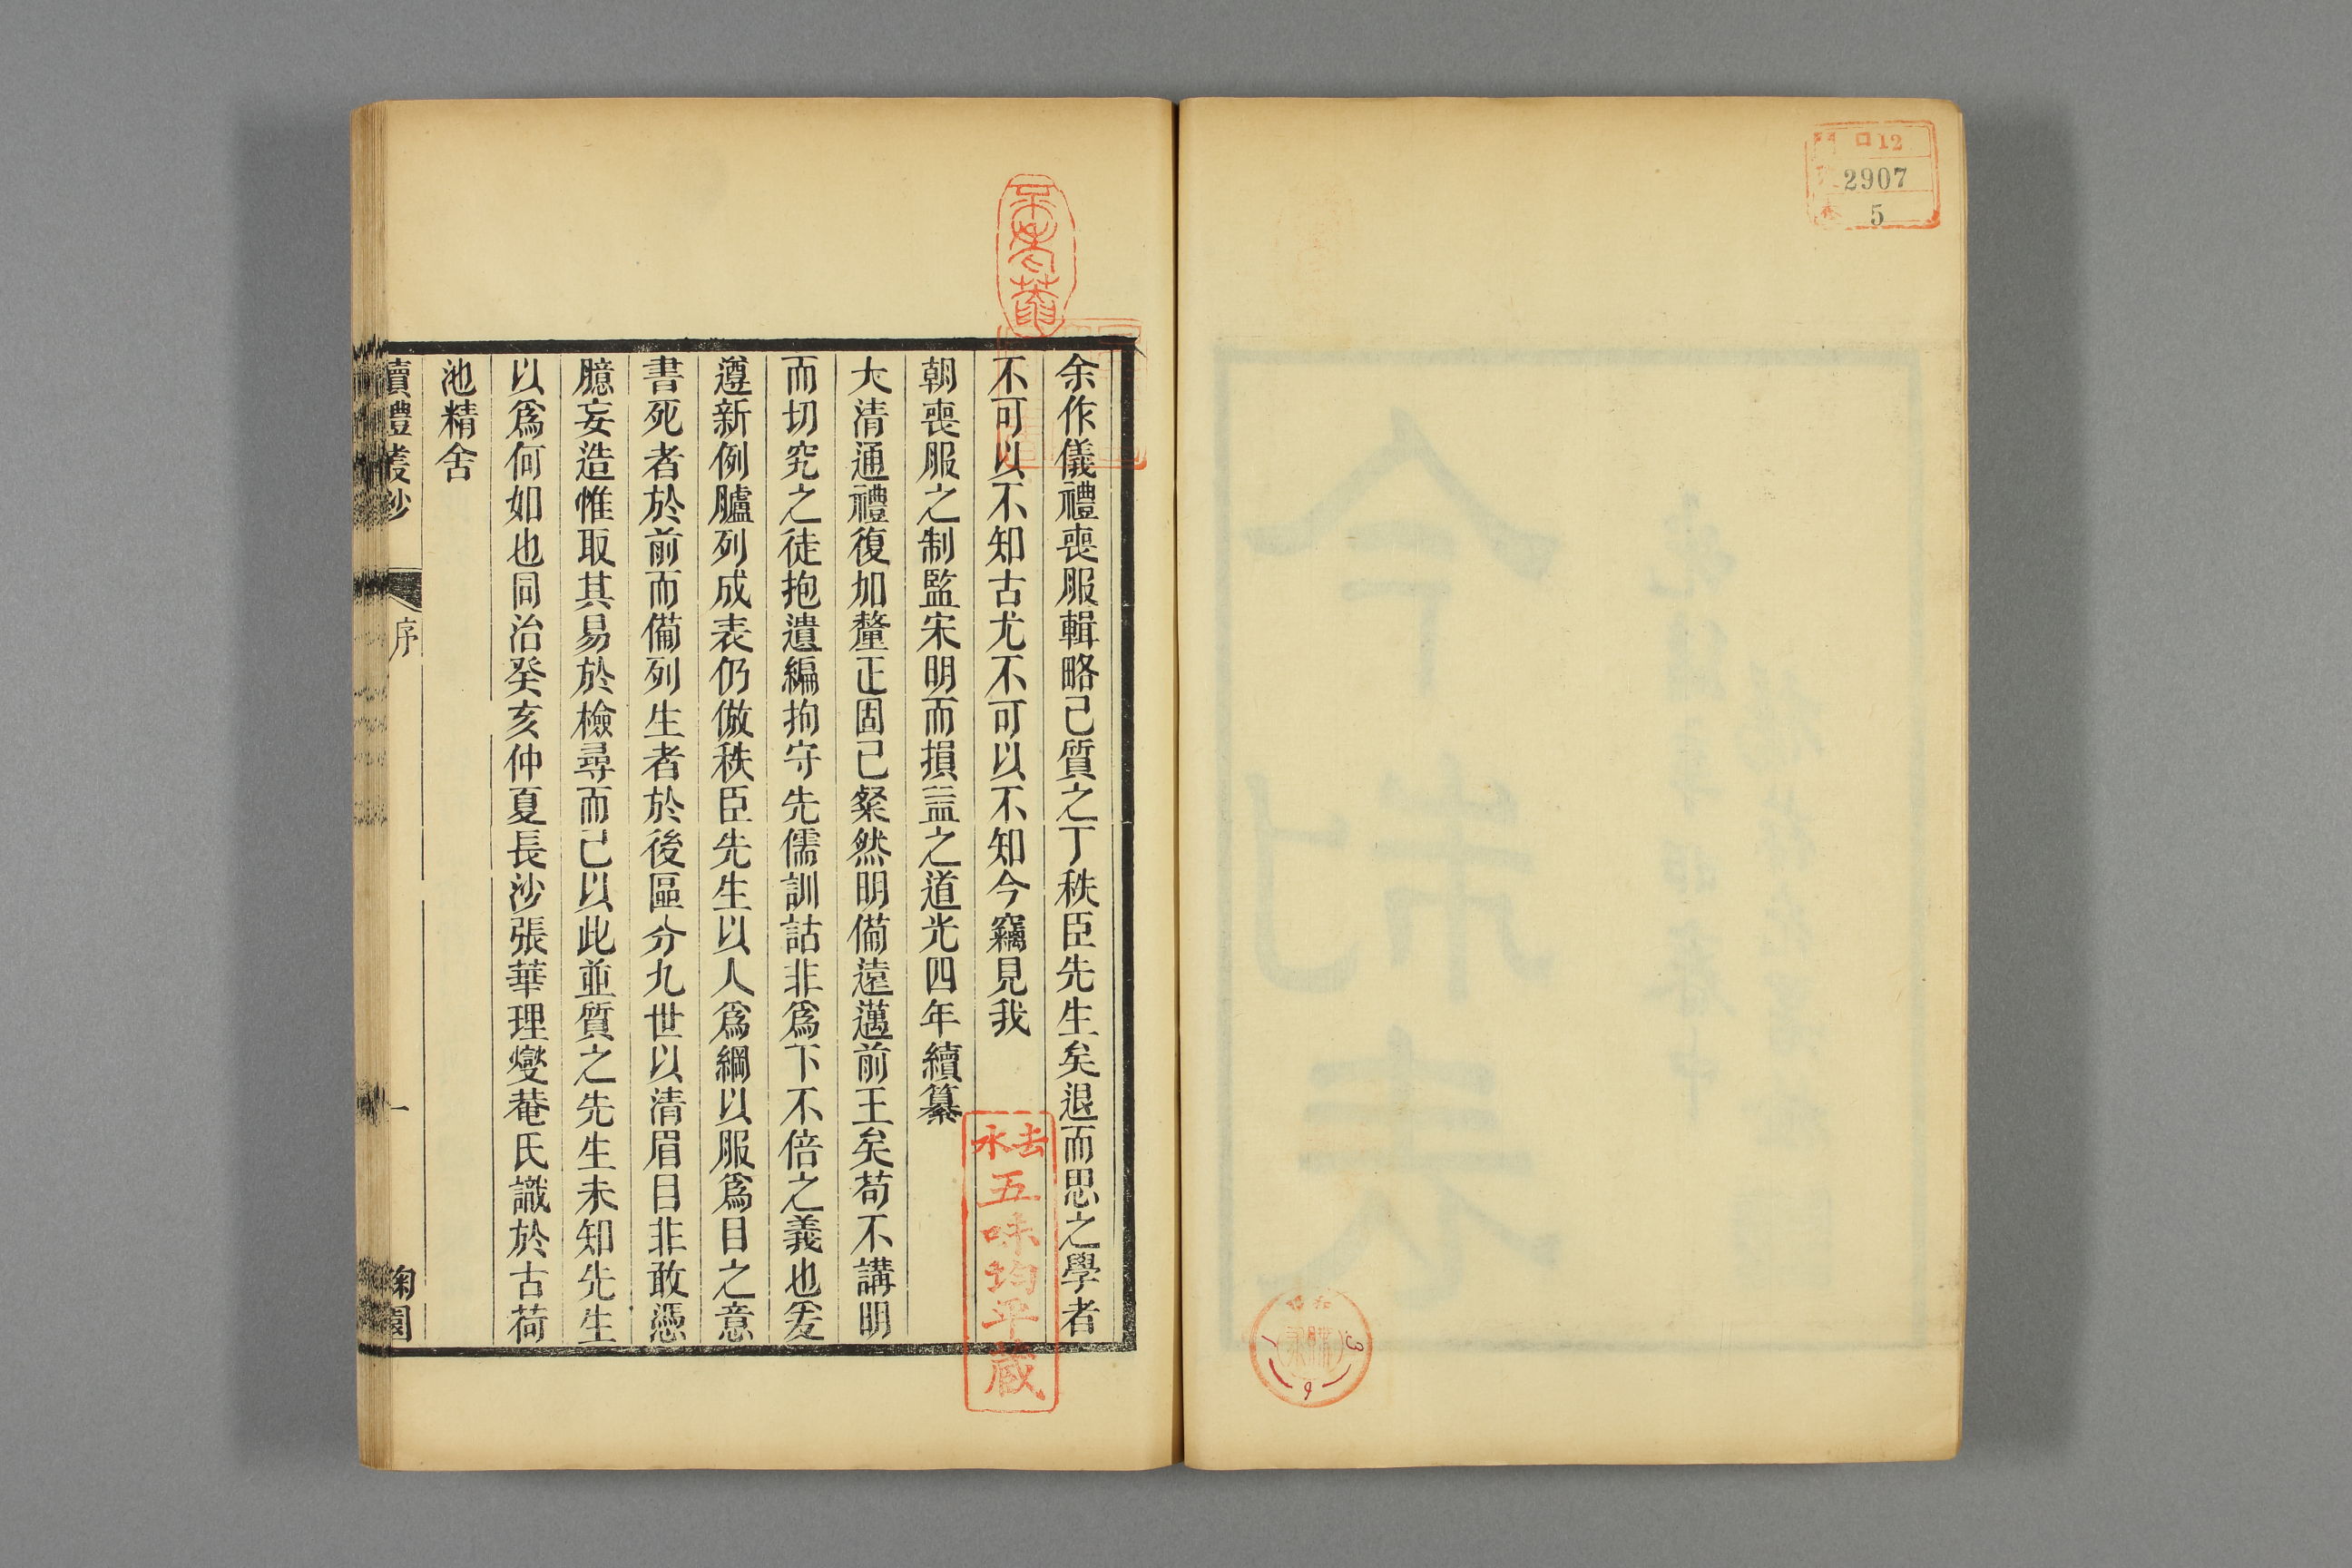 口12
2907
5
余作儀禮喪服輯略已質之丁秩臣先生矣退而思之學者
不可以不知古尤不可以不知今竊見我
朝喪服之制監宋明而損益之道光四年續纂
大清通禮復加釐正固已粲然明備遠邁前王矣苟不講明
而切究之徒抱遺編拘守先儒訓詁非爲下不倍之義也爰
遵新例臚列成表仍倣秩臣先生以人爲綱以服爲目之意
書死者於前而備列生者於後區分九世以清眉目非敢憑
臆妄造惟取其易於檢尋而已以此並質之先生未知先生
以爲何如也同治癸亥仲夏長沙張華理燮菴氏識於古荷
池精舍
讀禮叢鈔
序
一
鞠園
五味均平蔵
3
9